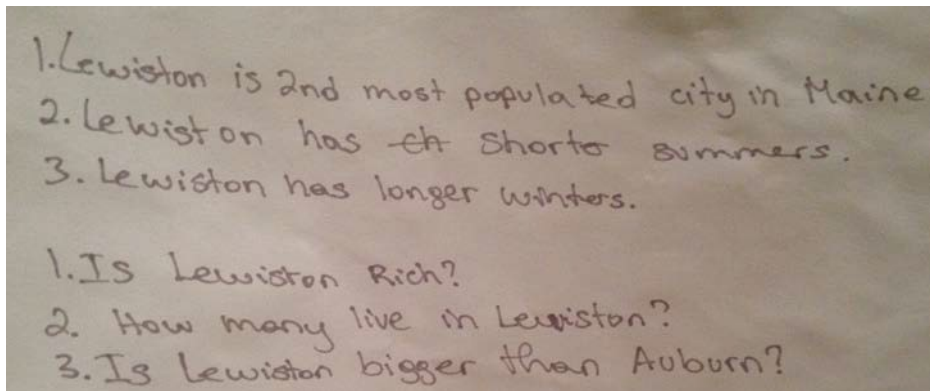 1. Lewiston is 2nd most populated city in Maine
2. Lewiston has ch Short summers.
3. Lewiston has longer winters.
1. Is Lewiston Rich?
2. How many live in Lewiston?
3. Is Lewiston bigger than Auburn?